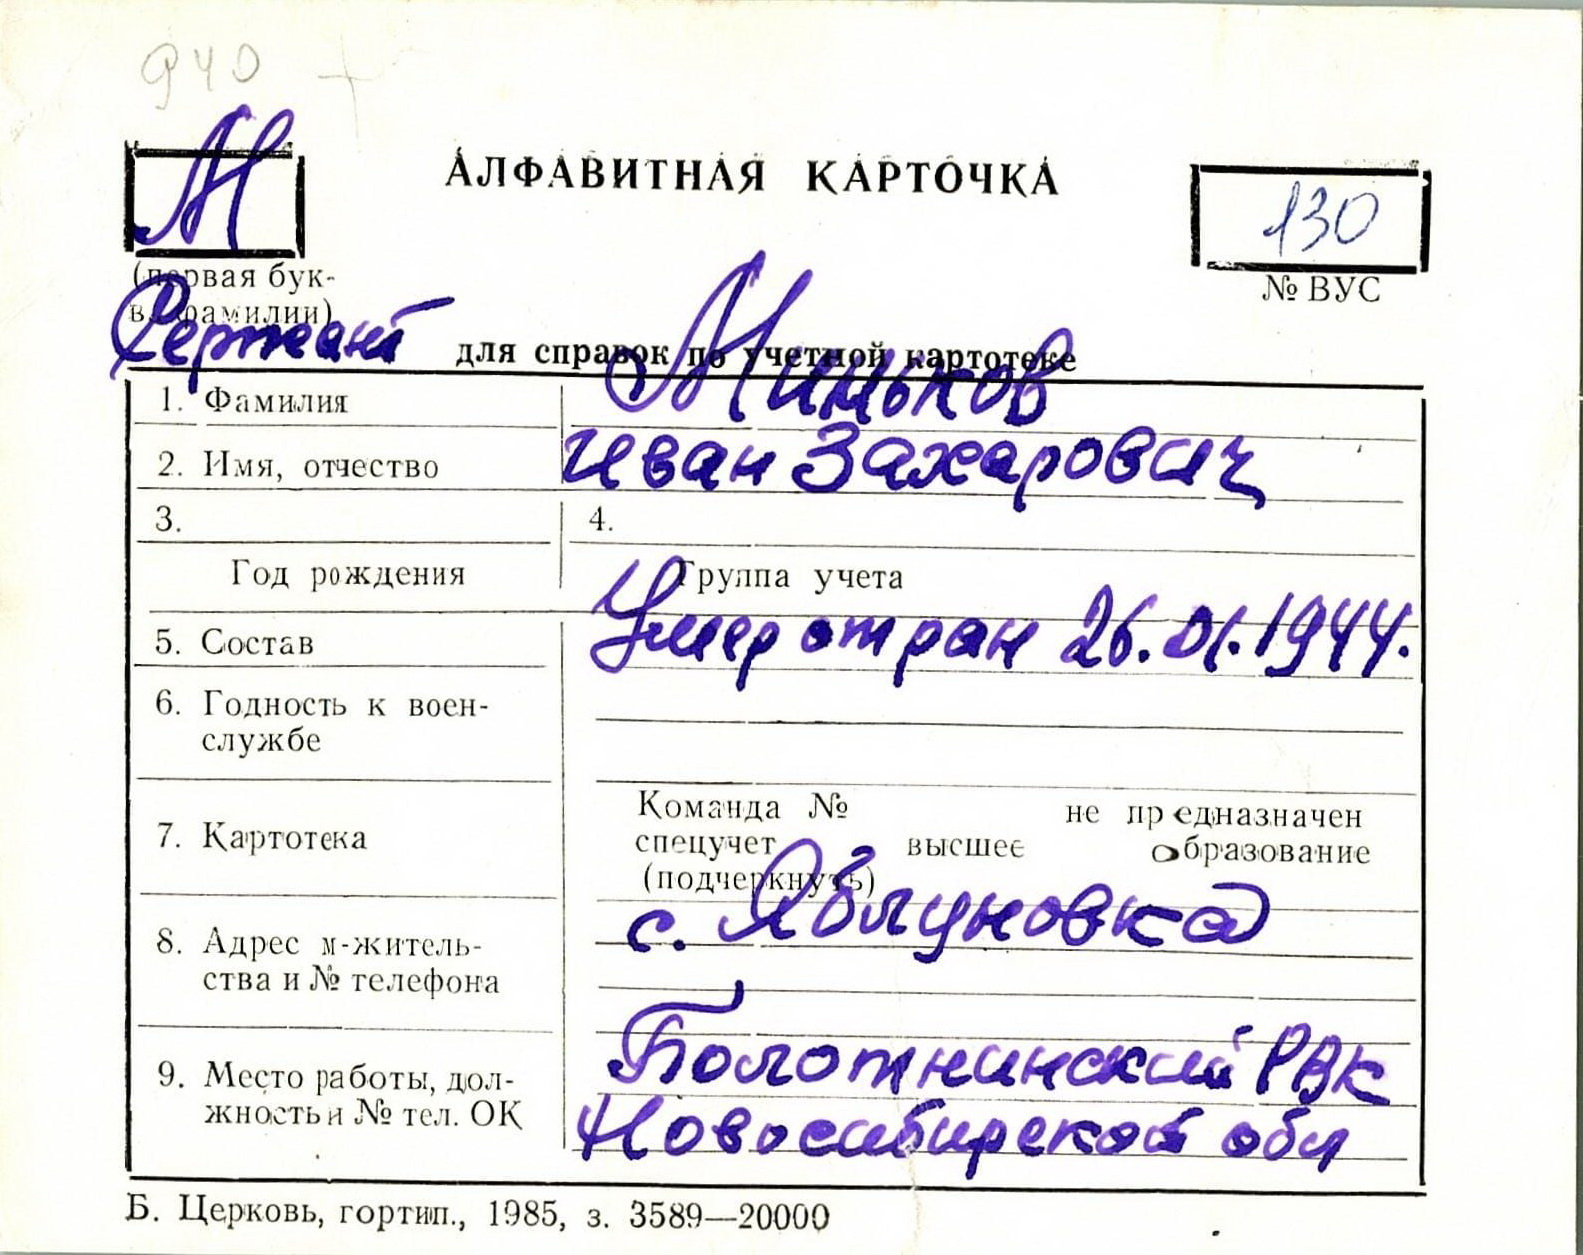 940 +
М
АЛФАВИТНАЯ КАРТОЧКА
130
(первая бук-
ва фамилии)
№ ВУС
Сержант
для справок по учетной картотеке
1. Фамилия
Миньков
2. Имя, отчество
Иван Захарович
3.
4.
Год рождения
Группа учета
5. Состав
Умер от ран 26.01.1944.
6. Годность к воен-
службе
7. Картотека
Команда № не предназначен
спецучет высшее образование
(подчеркнуть)
с. Яблуновка
8. Адрес м-житель-
ства и № телефона
9. Место работы, дол-
жность и № тел. ОК
Болотнинский РВК
Новосибирской обл
Б. Церковь, гортип., 1985, з. 3589—20000